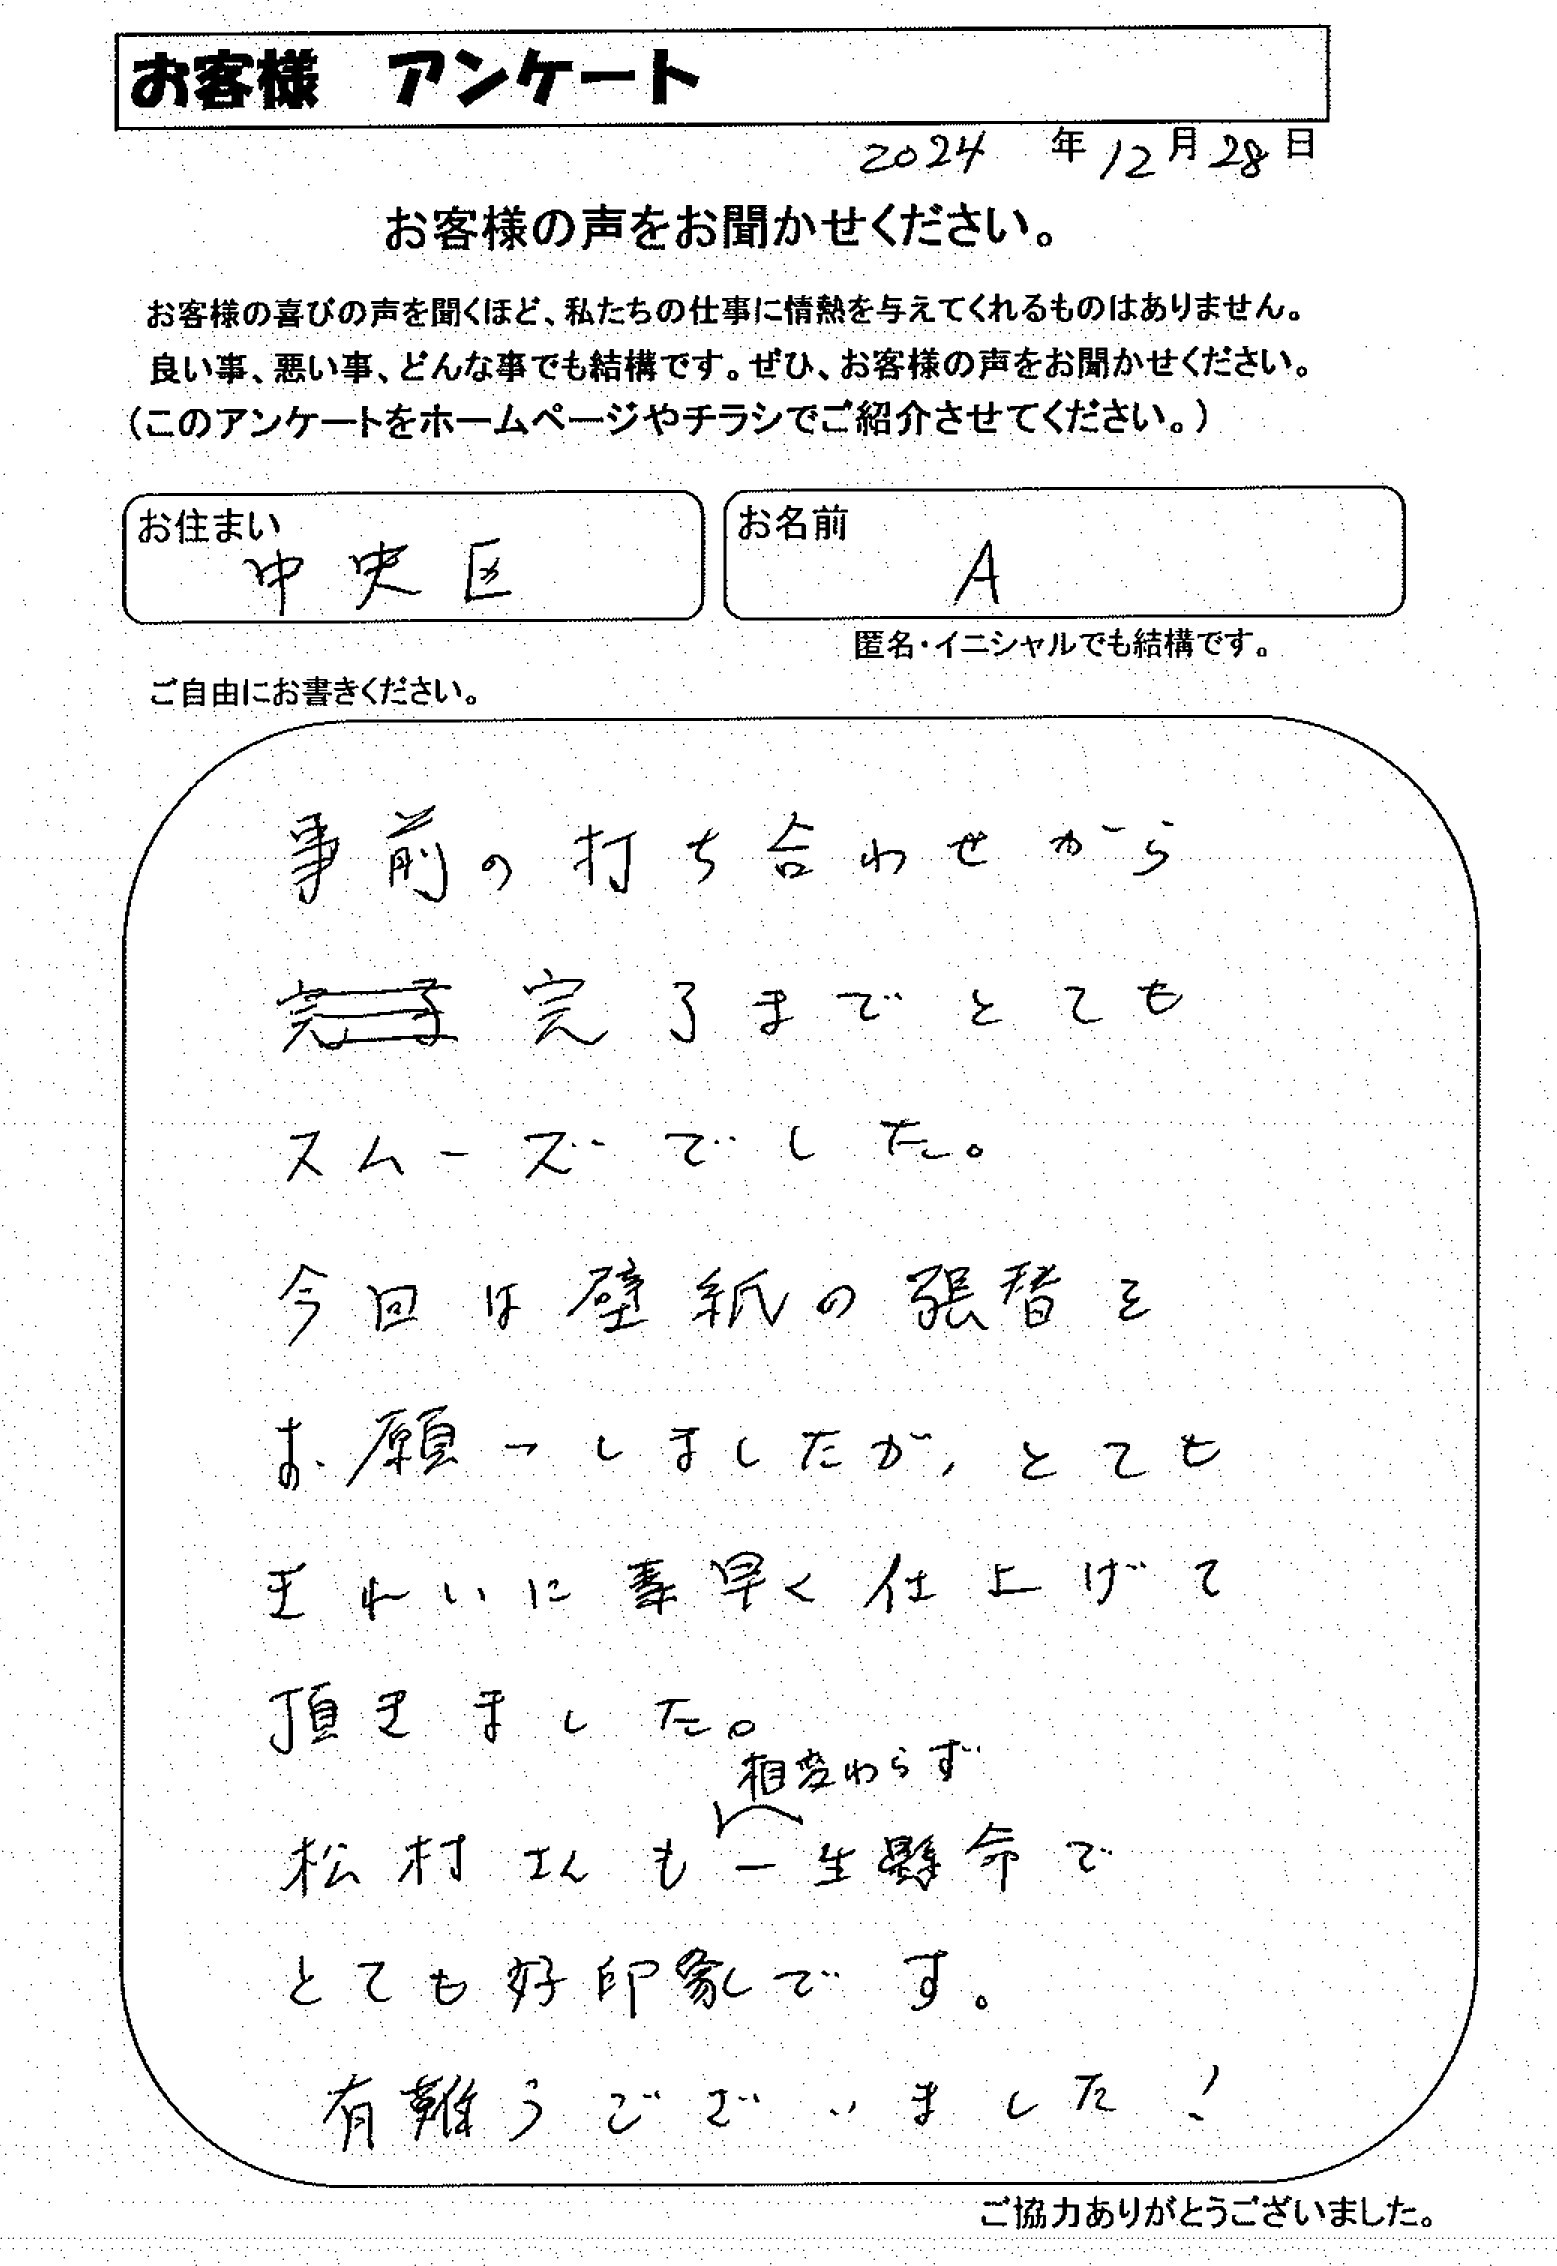 お客様 アンケート
2024 年 12 月 28 日
お客様の声をお聞かせください。
お客様の喜びの声を聞くほど、私たちの仕事に情熱を与えてくれるものはありません。
良い事、悪い事、どんな事でも結構です。ぜひ、お客様の声をお聞かせください。
(このアンケートをホームページやチラシでご紹介させてください。)
お住まい
中央区
お名前
A
匿名・イニシャルでも結構です。
ご自由にお書きください。
事前の打ち合わせから
完了までとても
スムーズでした。
今回は壁紙の張替を
お願いしましたが、とても
きれいに素早く仕上げて
頂きました。
相変わらず
松村さんも一生懸命で
とても好印象です。
有難うございました!
ご協力ありがとうございました。